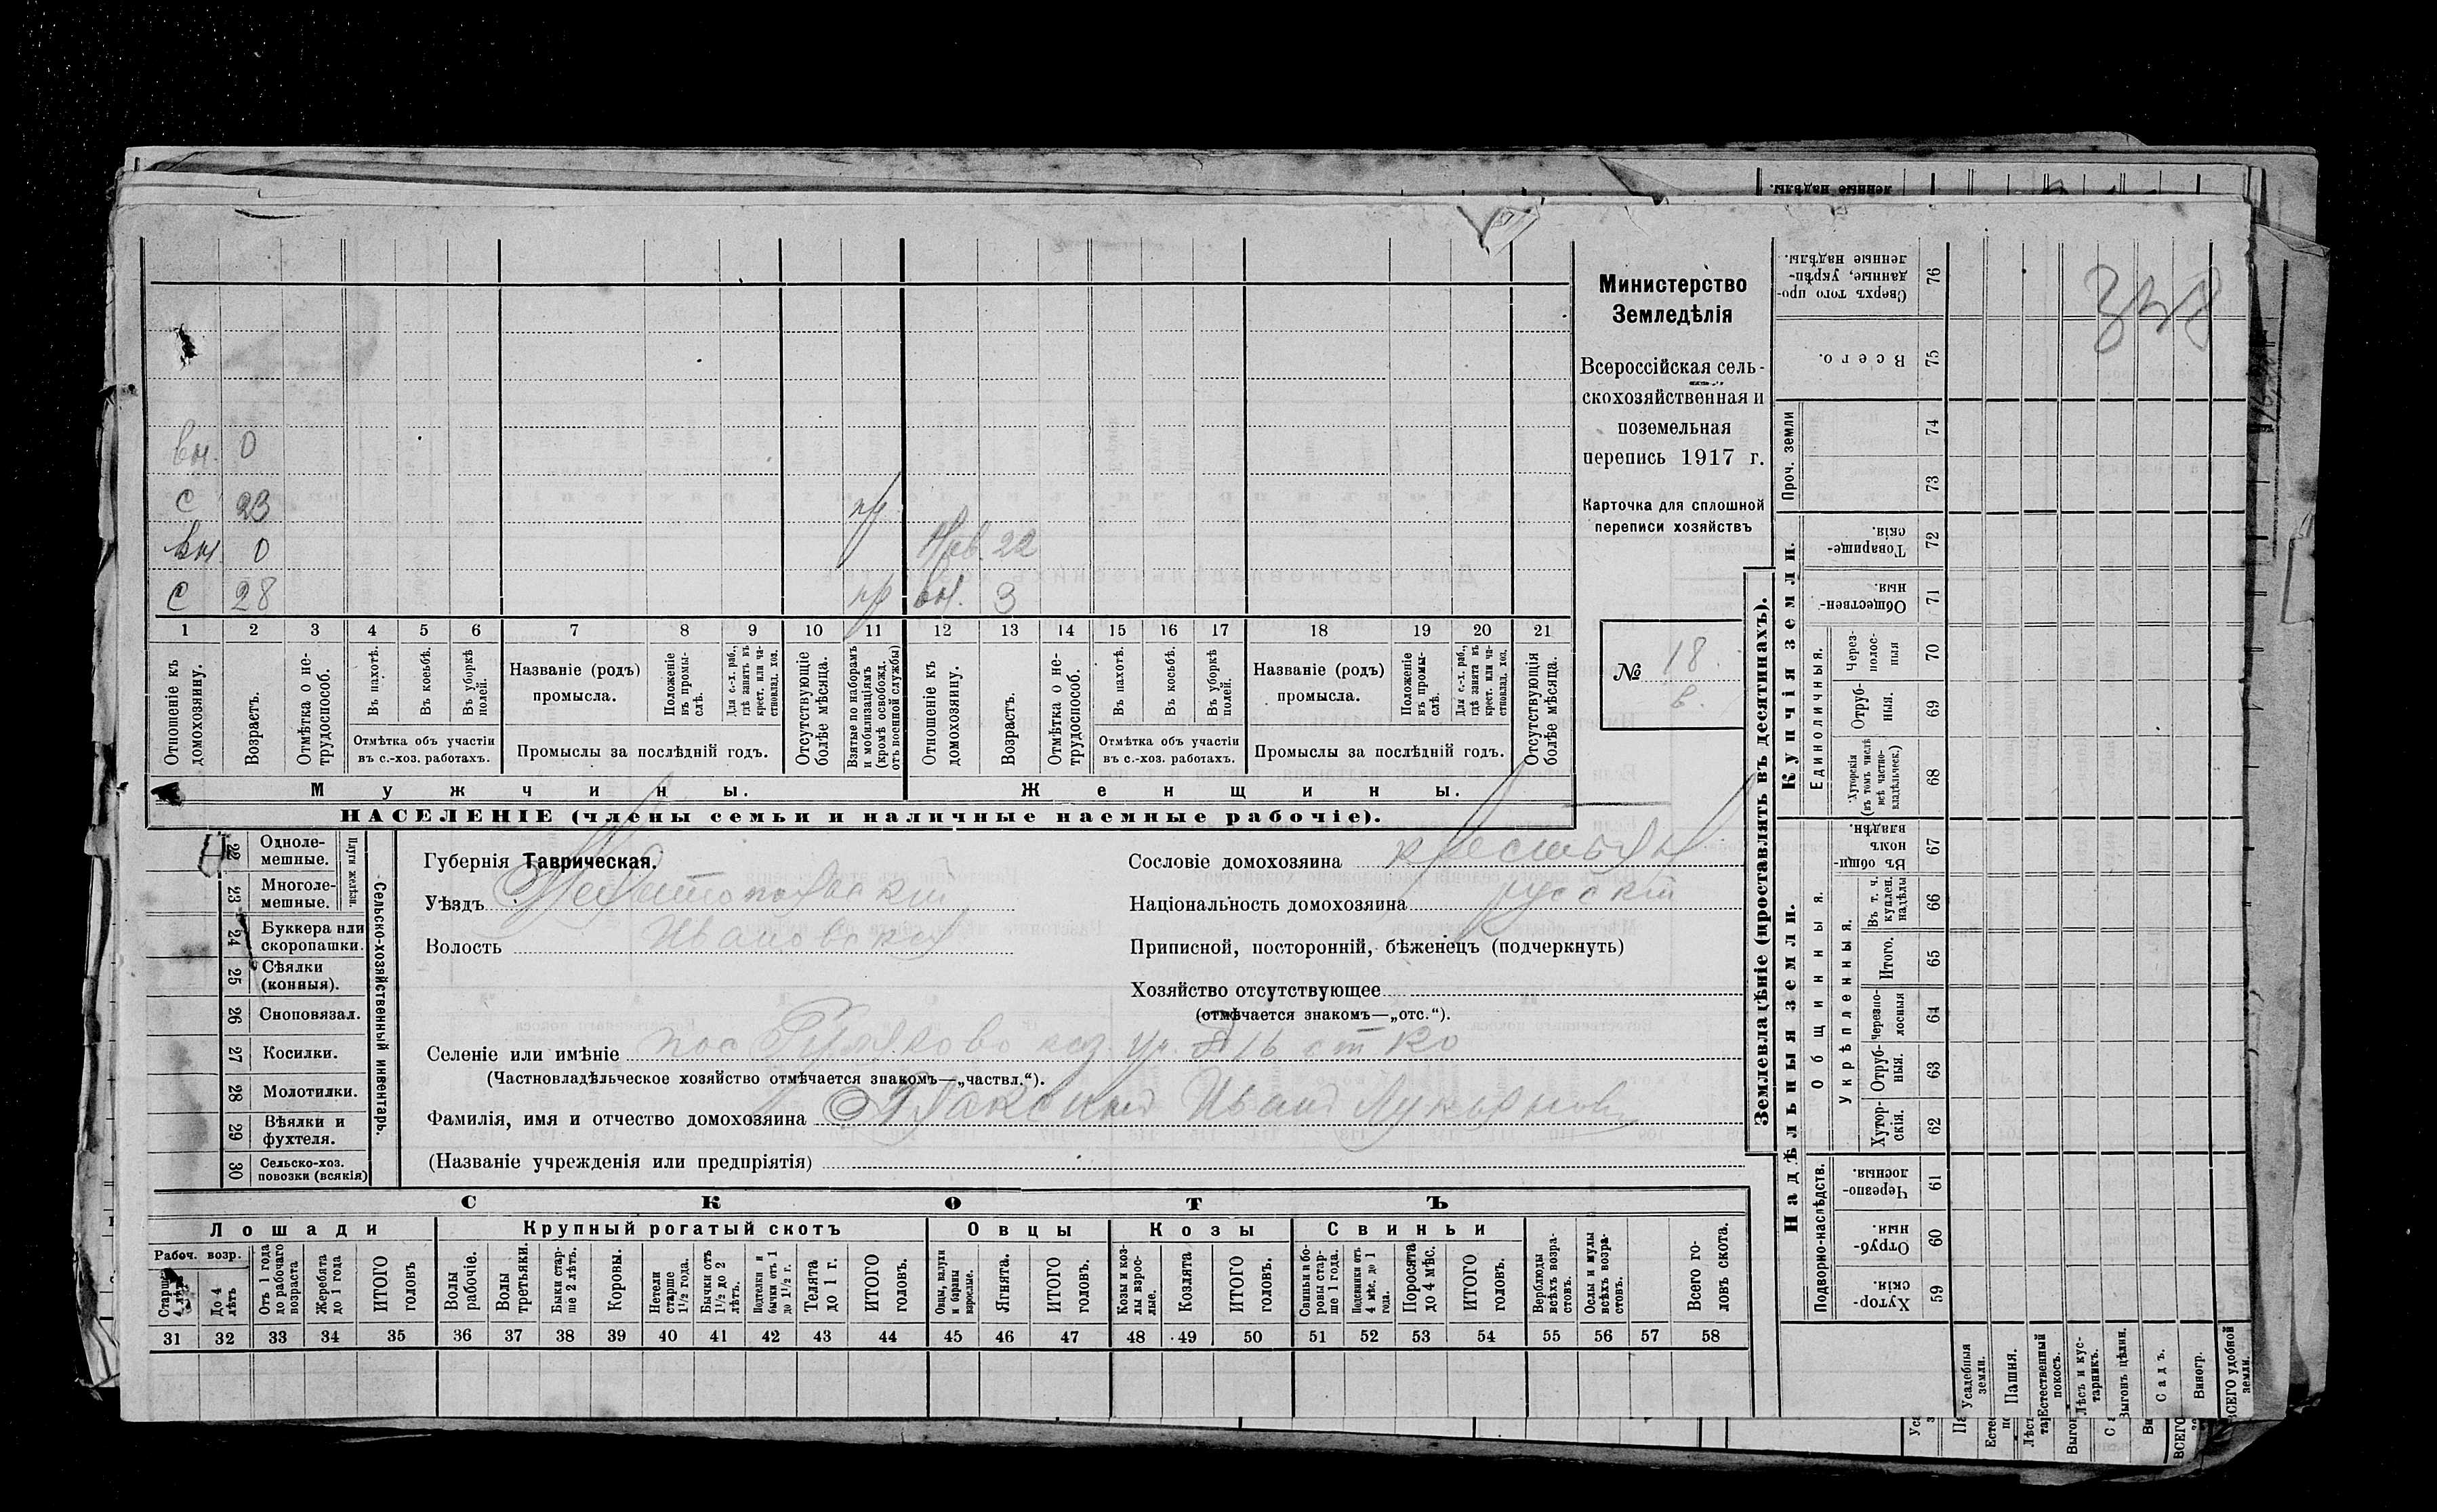 ленные надѣлы.
Министерство
Земледѣлія
Всероссійская сель-
скохозяйственная и
поземельная
перепись 1917 г.
Карточка для сплошной
переписи хозяйствъ
№ 18
в.
вн. 0
с 23
вн. 0
22
с 28 вн. 3
1 2 3 4 5 6 7 8 9 10 11 12 13 14 15 16 17 18 19 20 21
Отношеніе къ домохозяину.
Возрастъ.
Отмѣтка о не-трудоспособ.
Въ пахотѣ.
Въ косьбѣ.
Въ уборкѣ полей.
Отмѣтка объ участіи
въ с.-хоз. работахъ.
Названіе (родъ)
промысла.
Положеніе въ промы-слѣ.
Для с.-х. раб., гдѣ занятъ въ крест. или ча-стновлад. хоз.
Промыслы за послѣдній годъ.
Отсутствующіе болѣе мѣсяца.
Взятые по наборамъ и мобилизаціямъ (кромѣ освобожд. отъ военной службы)
Отношеніе къ домохозяину.
Возрастъ.
Отмѣтка о не-трудоспособ.
Въ пахотѣ.
Въ косьбѣ.
Въ уборкѣ полей.
Отмѣтка объ участіи
въ с.-хоз. работахъ.
Названіе (родъ)
промысла.
Положеніе въ промы-слѣ.
Для с.-х. раб., гдѣ занятъ въ крест. или ча-стновлад. хоз.
Промыслы за послѣдній годъ.
Отсутствующія болѣе мѣсяца.
Мужчины.
Женщины.
НАСЕЛЕНІЕ (члены семьи и наличные наемные рабочіе).
22 Одноле-мешные.
23 Многоле-мешные.
Плуги желѣзн.
24 Буккера или скоропашки.
25 Сѣялки (конныя).
26 Сноповязал.
27 Косилки.
28 Молотилки.
29 Вѣялки и фухтеля.
30 Сельско-хоз. повозки (всякія)
Сельско-хозяйственный инвентарь.
Губернія Таврическая.
Уѣздъ Мелитопольскій
Волость Ивановская
Сословіе домохозяина крестьян
Національность домохозяина русскій
Приписной, посторонній, бѣженецъ (подчеркнуть)
Хозяйство отсутствующее
(отмѣчается знакомъ—„отс.“).
Селеніе или имѣніе пос
(Частновладѣльческое хозяйство отмѣчается знакомъ—„частвл.“).
Фамилія, имя и отчество домохозяина Иванъ
(Названіе учрежденія или предпріятія)
СКОТЪ
Лошади
Крупный рогатый скотъ
Овцы
Козы
Свиньи
Рабоч. возр.
Старше 4 лѣтъ
До 4 лѣтъ
Отъ 1 года до рабочаго возраста
Жеребята до 1 года
ИТОГО головъ
Волы рабочіе.
Волы третьяки.
Быки стар-ше 2 лѣтъ.
Коровы.
Нетели старше 1½ года.
Бычки отъ 1½ до 2 лѣтъ.
Подтелки и бычки отъ 1 до 1½ г.
Телята до 1 г.
ИТОГО головъ.
Овцы, валухи и бараны взрослые.
Ягнята.
ИТОГО головъ.
Козы и коз-лы взрос-лые.
Козлята
ИТОГО головъ.
Свиньи и бо-ровы стар-ше 1 года.
Подсвинки отъ 4 мѣс. до 1 года.
Поросята до 4 мѣс.
ИТОГО головъ.
Верблюды всѣхъ возра-стовъ.
Ослы и мулы всѣхъ возра-стовъ.
Всего го-ловъ скота.
31 32 33 34 35 36 37 38 39 40 41 42 43 44 45 46 47 48 49 50 51 52 53 54 55 56 57 58
Землевладѣніе (проставлять въ десятинахъ).
Сверхъ того про-данные, укрѣп-ленные надѣлы. 76
Всего. 75
Проч. земли
74
73
Купчія земли.
Товарище-скія. 72
Обществен-ныя. 71
Единоличныя.
Через-полос-ныя 70
Отруб-ныя. 69
Хуторскія (въ томъ числѣ всѣ частно-владѣльческ.) 68
Надѣльныя земли.
Общинныя.
Въ общин-номъ владѣн. 67
Укрѣпленныя.
Въ т. ч. куплен. надѣлы 66
Итого. 65
Черезпо-лосныя 64
Отруб-ныя. 63
Хутор-скія. 62
Подворно-наслѣдств.
Черезпо-лосныя. 61
Отруб-ныя. 60
Хутор-скія. 59
Усадебныя земли.
Пашня.
Естественный покосъ.
Лѣсъ и кус-тарникъ.
Выгонъ цѣлин.
Садъ.
Виногр.
ВСЕГО удобной земли.